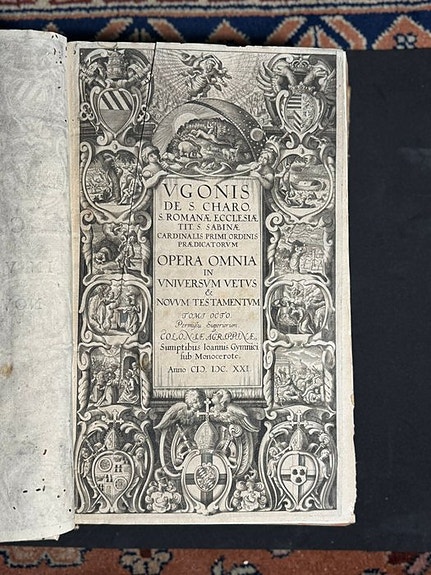 VGONIS
DE S. CHARO.
S. ROMANÆ ECCLESIÆ
TIT. S. SABINÆ
CARDINALIS PRIMI ORDINIS
PRÆDICATORVM
OPERA OMNIA
IN
VNIVERSVM VETVS
&
NOVVM TESTAMENTVM
TOMI OCTO.
Permissu Superiorum
COLONIÆ AGRIPPINÆ,
Sumptibus Ioannis Gymnici
sub Monocerote.
Anno CIƆ. IƆC. XXI.